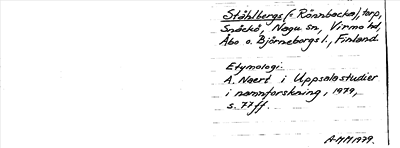 Ståhlbergs (= Rönnbacka), torp,
Snäckö, Nagu sn, Virmo hd,
Åbo o. Björneborgs l., Finland.
Etymologi:
A. Naert i Uppsalastudier
i namnforskning, 1979,
s. 77 ff.
A-MM 1979.